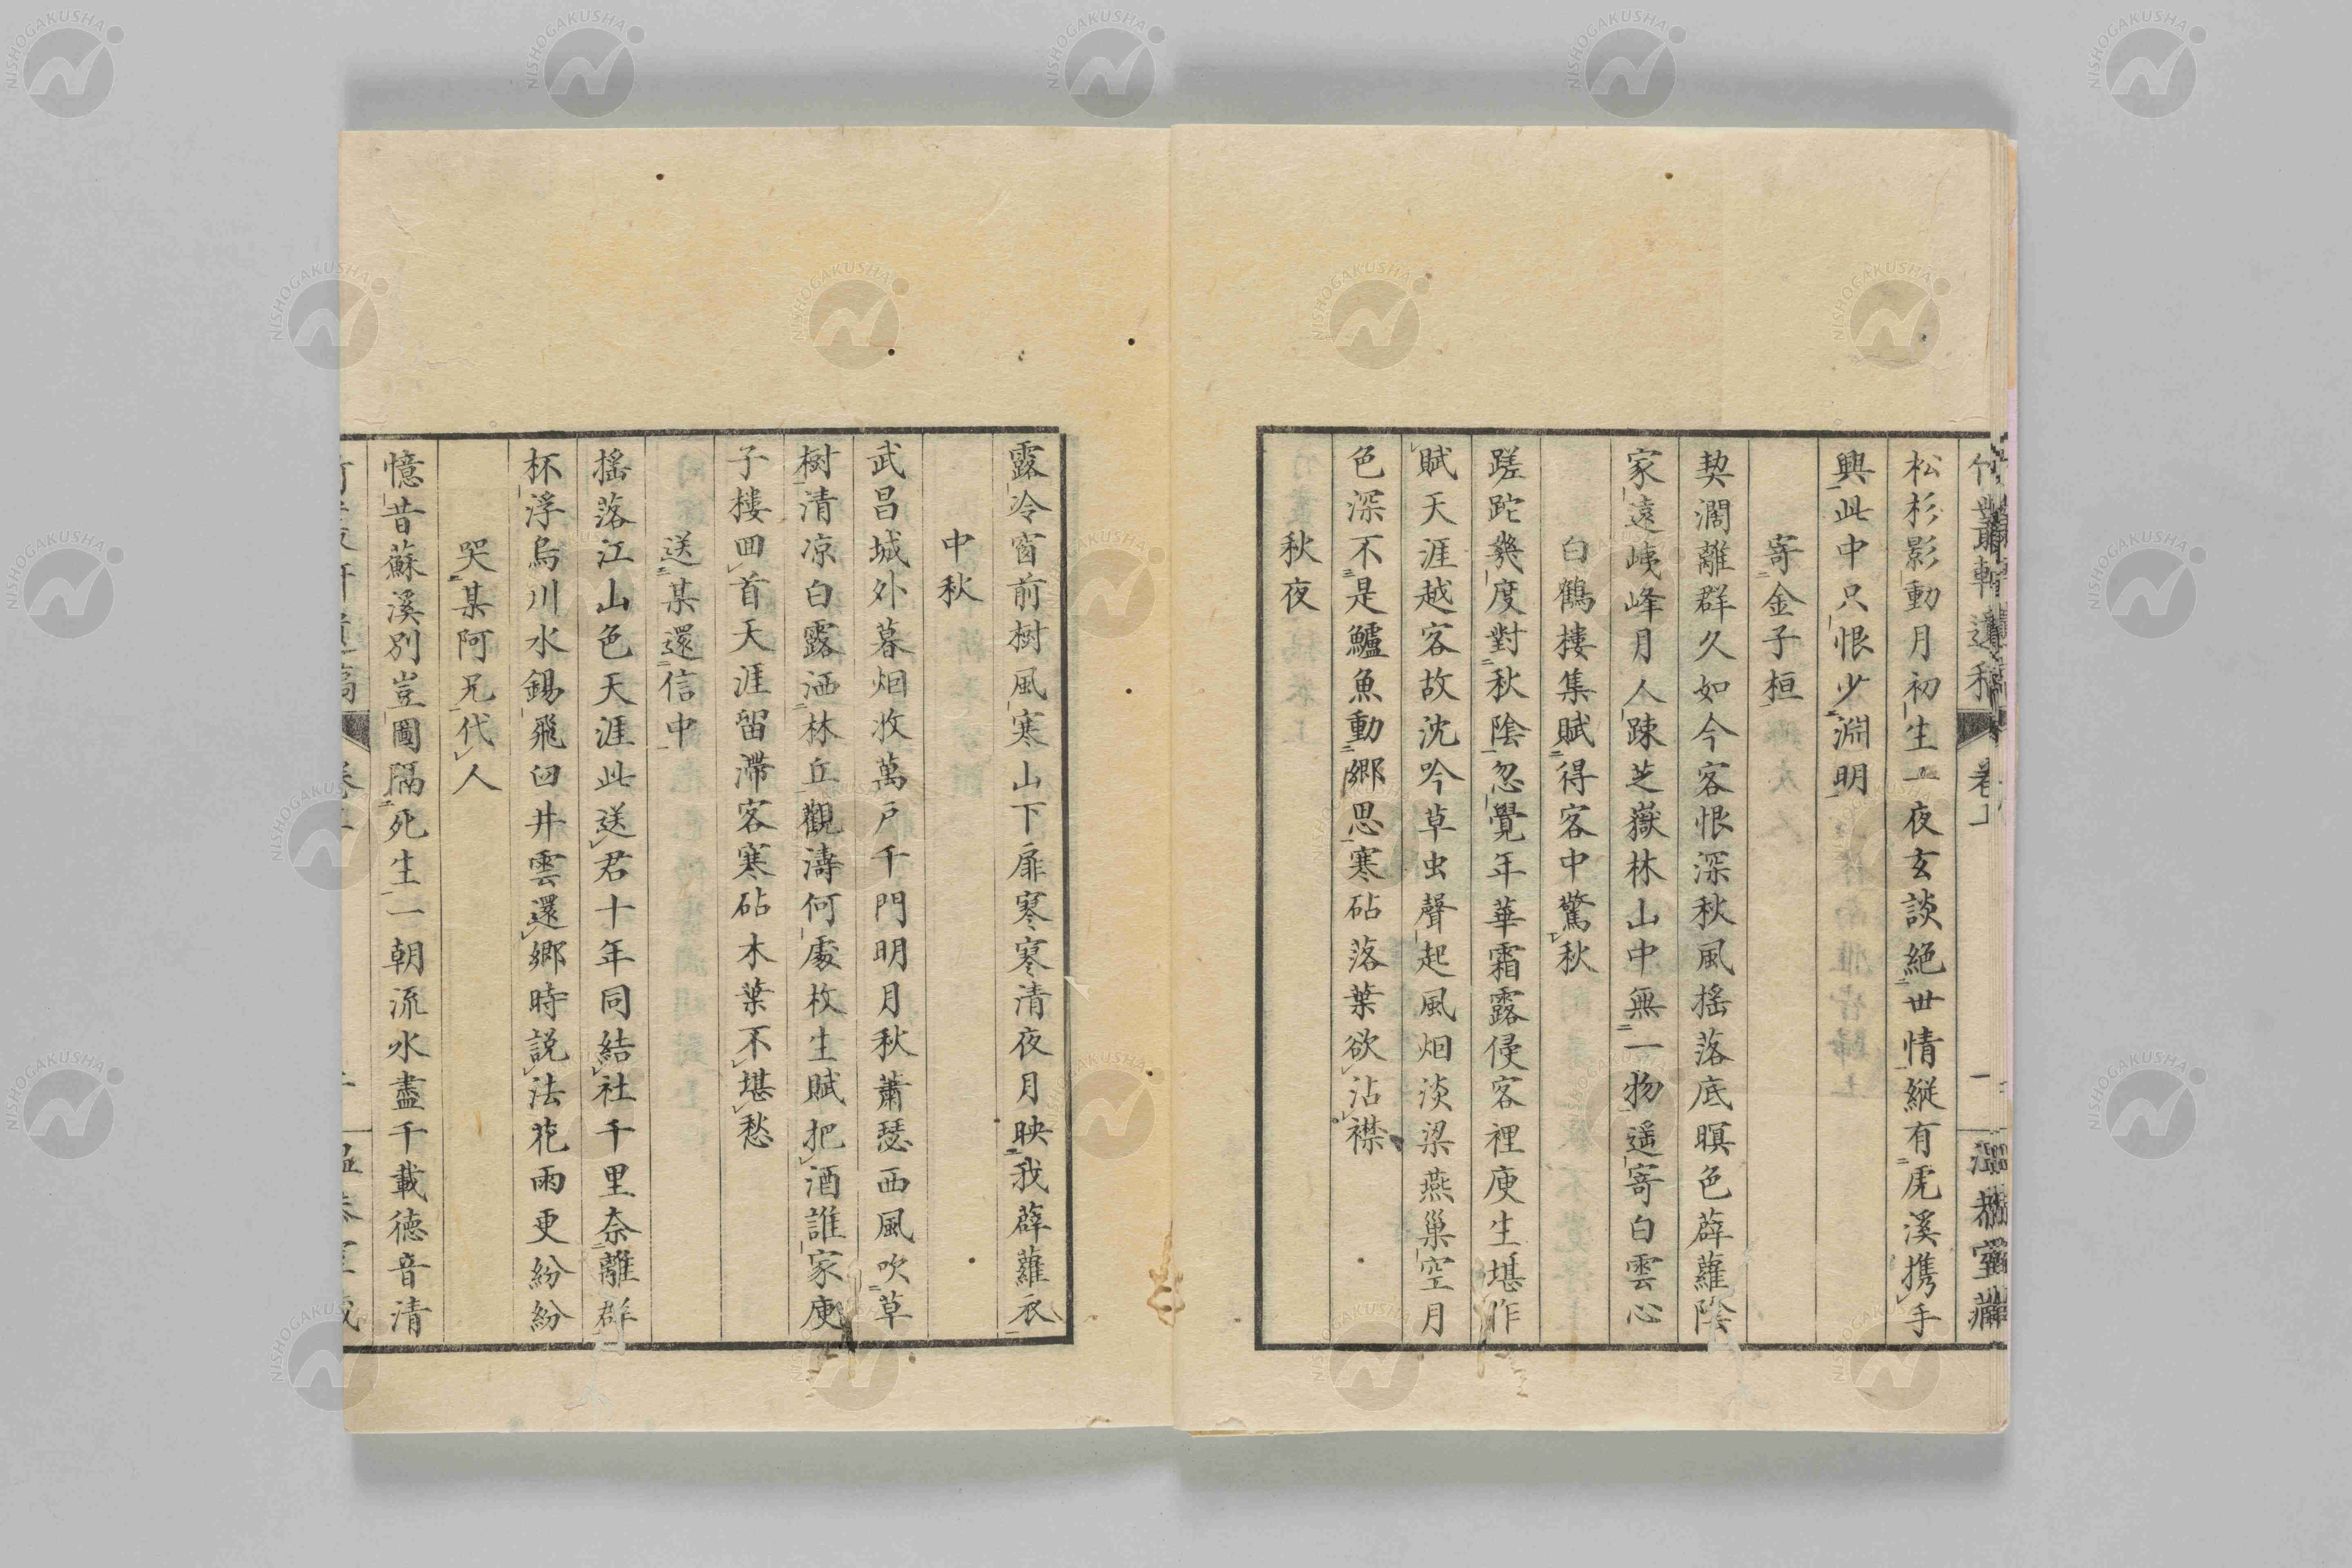 松杉影動月初生一夜玄談絶世情縱有虎溪携手
興此中只恨少淵明
寄金子桓
契濶離群久如今客恨深秋風搖落底暝色薜蘿陰
家遠峓峰月人疎芝嶽林山中無一物遥寄白雲心
白鶴樓集賦得客中驚秋
蹉跎幾度對秋陰忽覺年華霜露侵客裡庾生堪作
賦天涯越客故沈吟草虫聲起風烟淡梁燕巢空月
色深不是鱸魚動郷思寒砧落葉欲沾襟
秋夜
露冷窗前樹風寒山下扉寒寒清夜月映我薜蘿衣
中秋
武昌城外暮烟收萬戶千門明月秋蕭瑟西風吹草
樹清凉白露洒林丘觀濤何處枚生賦把酒誰家庾
子樓回首天涯留滯客寒砧木葉不堪愁
送某還信中
搖落江山色天涯此送君十年同結社千里奈離群
杯浮烏川水錫飛臼井雲還郷時説法花雨更紛紛
哭某阿兄代人
憶昔蘇溪別豈圖隔死生一朝流水盡千載徳音清